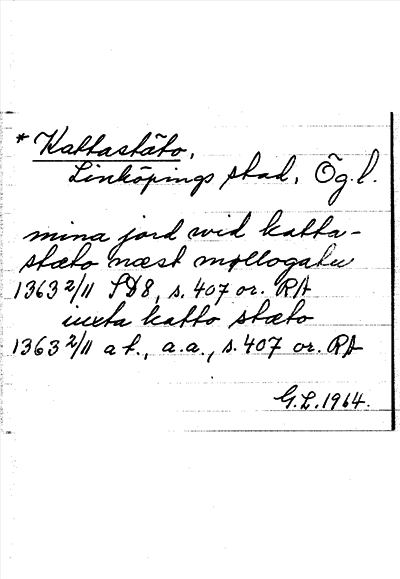 * Kattastäto,
Linköpings stad, Ög.l.
mina jord wid katta-
stæto næst møllogatu
1363 2/11 SD8, s. 407 or. RA
iuxta katto stæto
1363 2/11 at., a.a., s. 407 or. RA
G.L. 1964.